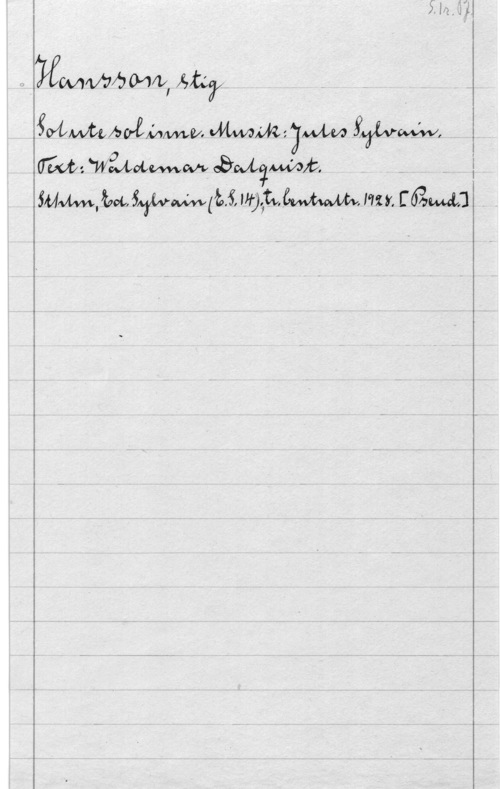 S. 1r. Pf.
Hansson, Stig
Sol ute sol inne. Musik: Jules Sylvain.
Text: Waldemar Dalquist.
Sthlm, Ed. Sylvain (E.S. 14); tr. Centraltr. 1928. [Pseud.]